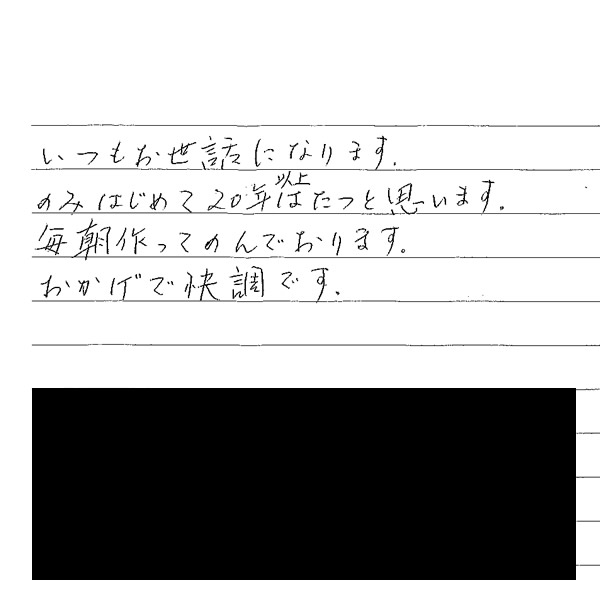 いつもお世話になります.
のみはじめて20年以上はたつと思います.
毎朝作ってのんでおります.
おかげで快調です.